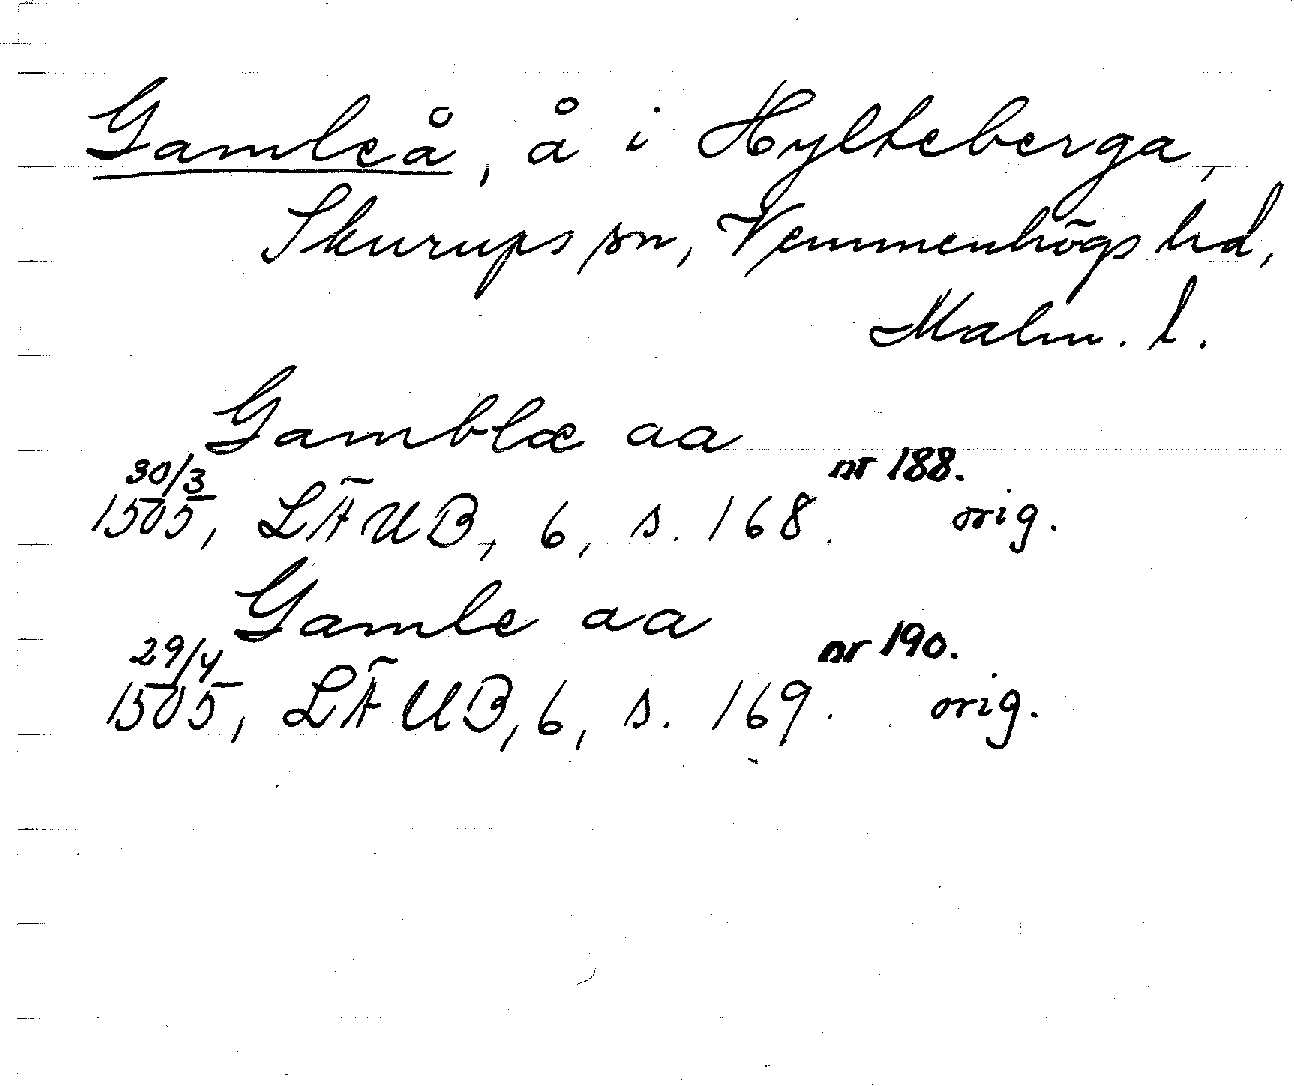 Gamleå, å i Hylteberga,
Skurups sn, Vemmenhögs hd,
Malm. l.
Gamblæ aa
30/3 nr 188.
1505, LÄUB, 6, s. 168. orig.
Gamle aa
29/4 nr 190.
1505, LÄUB, 6, s. 169. orig.